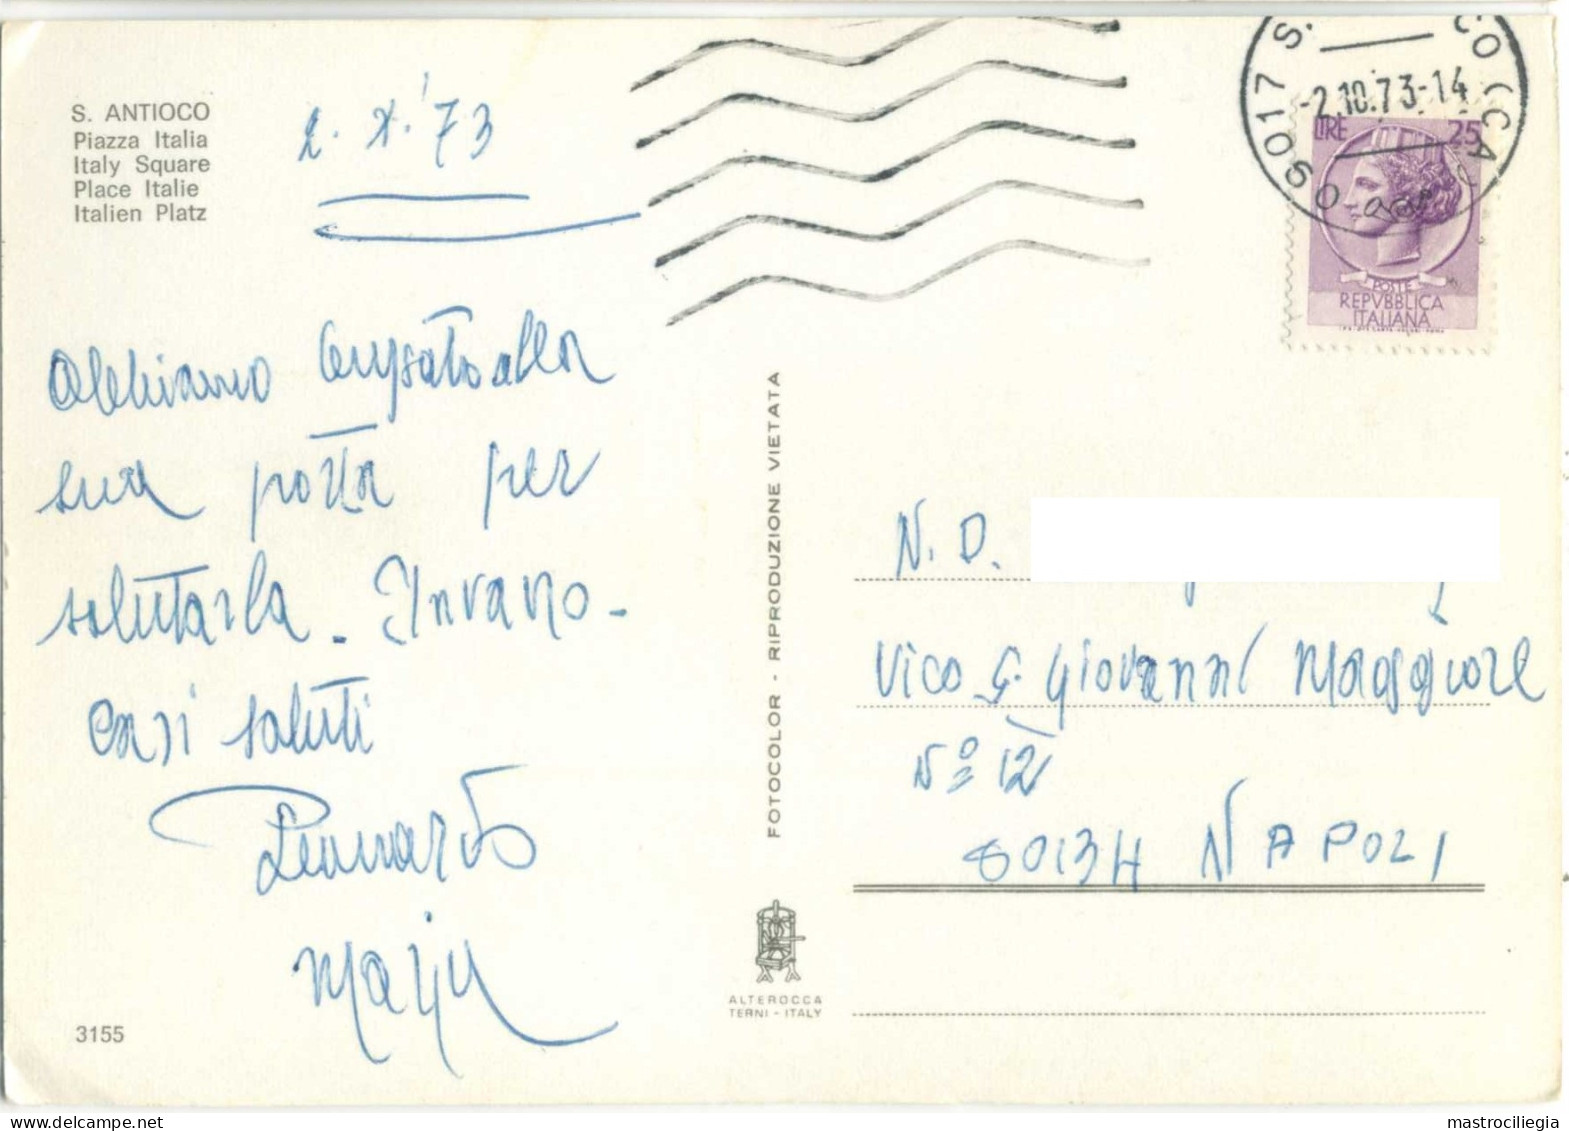 S. ANTIOCO
Piazza Italia
Italy Square
Place Italie
Italien Platz
2. X. '73
Abbiamo bussato alla
sua porta per
salutarla. Invano -
Cari saluti
Leonardo
3155
FOTOCOLOR - RIPRODUZIONE VIETATA
ALTEROCCA
TERNI - ITALY
09017 S.
-2.10.73-14
LIRE 25
POSTE
REPVBBLICA
ITALIANA
N. D.
Vico S. Giovanni Maggiore
Nº 12
80134 NAPOLI
mastrociliegia